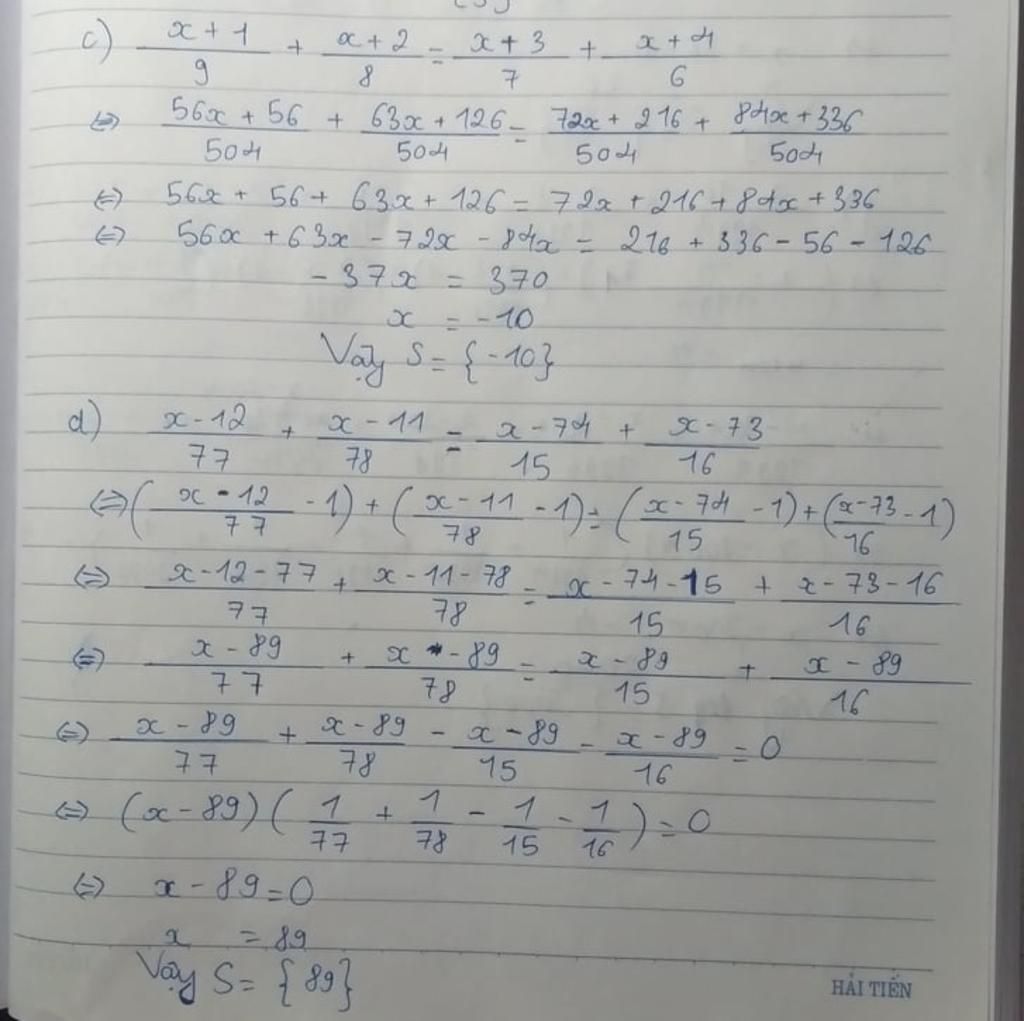 c) (x + 1)/9 + (x + 2)/8 = (x + 3)/7 + (x + 4)/6
⇔ (56x + 56)/504 + (63x + 126)/504 = (72x + 216)/504 + (84x + 336)/504
⇔ 56x + 56 + 63x + 126 = 72x + 216 + 84x + 336
⇔ 56x + 63x - 72x - 84x = 216 + 336 - 56 - 126
- 37x = 370
x = -10
Vậy S = {-10}
d) (x - 12)/77 + (x - 11)/78 = (x - 74)/15 + (x - 73)/16
⇔ ((x - 12)/77 - 1) + ((x - 11)/78 - 1) = ((x - 74)/15 - 1) + ((x - 73)/16 - 1)
⇔ (x - 12 - 77)/77 + (x - 11 - 78)/78 = (x - 74 - 15)/15 + (x - 73 - 16)/16
⇔ (x - 89)/77 + (x - 89)/78 = (x - 89)/15 + (x - 89)/16
⇔ (x - 89)/77 + (x - 89)/78 - (x - 89)/15 - (x - 89)/16 = 0
⇔ (x - 89) (1/77 + 1/78 - 1/15 - 1/16) = 0
⇔ x - 89 = 0
x = 89
Vậy S = {89}
HẢI TIẾN